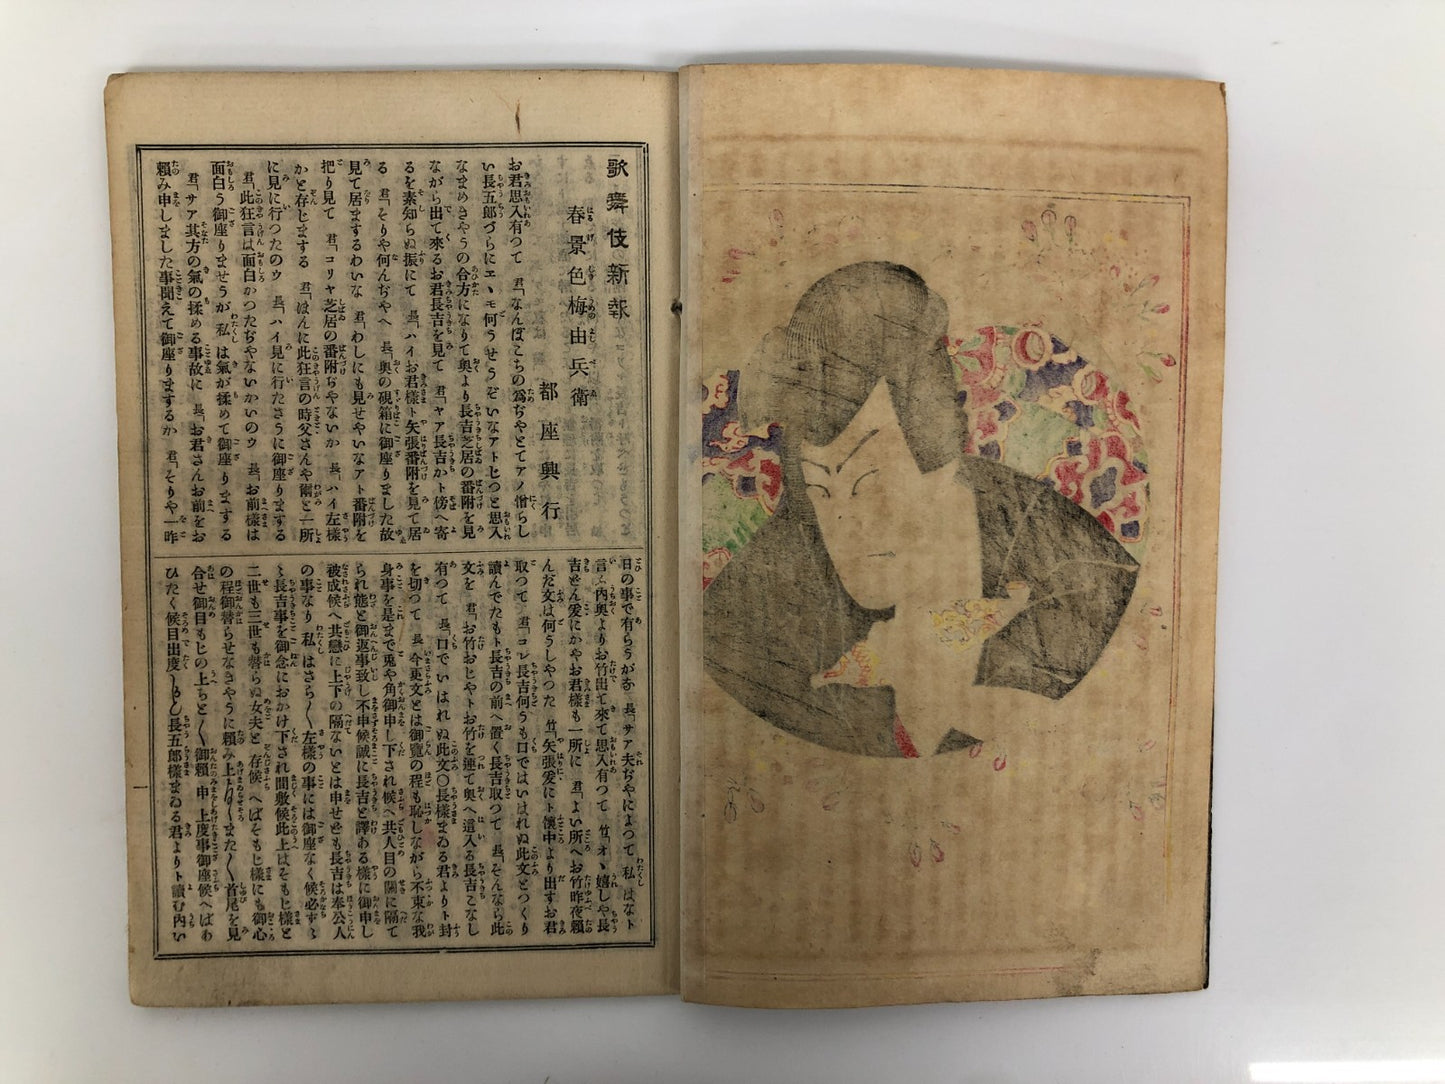 歌舞伎新報
春景色梅由兵衛
都座興行
お君思入有つて　君「なんぼこちの為ぢやとてアノ憎らし
い長五郎づらにエヽモ何うせうぞいなアトヒつと思入
なまめきやうの合方になりて奥より長吉芝居の番附を見
ながら出て來るお君長吉を見て　君「ヤア長吉かト傍へ寄
るを素知らぬ振にて　長「ハイお君様ト矢張番附を見て居
る　君「そりや何んぢやへ　長「奥の硯箱に御座りました故
見て居まするわいな　君「わしにも見せやいなアト番附を
把り見て　君「コリヤ芝居の番附ぢやないか　長「ハイ左様
かと存じまする　君「ほんに此狂言の時父さんや爾と一所
に見に行つたのウ　長「ハイ見に行たさうに御座りまする
君「此狂言は面白かつたぢやないかいのウ　長「お前様は
面白う御座りませうが私は氣が揉めて御座りまする
君「サア其方の氣の揉める事故に　長「お君さんお前をお
頼み申しました事聞えて御座りまするか　君「そりや一昨
日の事で有らうがな　長「サア夫ぢやによつて私はなト
言ふ内奥よりお竹出て來て思入有つて　竹「オヽ嬉しや長
吉どん爰にかやお君様も一所に　君「よい所へお竹昨夜頼
んだ文は何うしやつた　竹「矢張爰にト懐中より出すお君
取つて　君「コレ長吉何うも口ではいはれぬ此文とつくり
讀んでたもト長吉の前へ置く長吉取つて　長「そんなら此
文を　君「お竹おじやトお竹を連て奥へ這入る長吉こなし
有つて　長「口でいはれぬ此文〇長様まゐる君よりト封
を切つて　長「今更文とは御覽の程も恥しながら不束な我
身事を是まで兎や角御申し下され候へ共人目の關に隔て
られ態と御返事致し不申候誠に長吉と譯ある様に御申し
被成候へ共戀に上下の隔ないとは申せども長吉は奉公人
の事なり私はさら〱左様の事には御座なく候必ず〻
〻長吉事を御念におかけ下され間敷候此上はそもじ様と
二世も三世も替らぬ女夫と存候へばそもじ様にも御心
の程御替らせなきやうに頼み上〱また〱首尾を見
合せ御目もじの上ちと〱御頼申上度事御座候へばわ
ひたく候目出度〱かしく長五郎様まゐる君よりト讀む内い